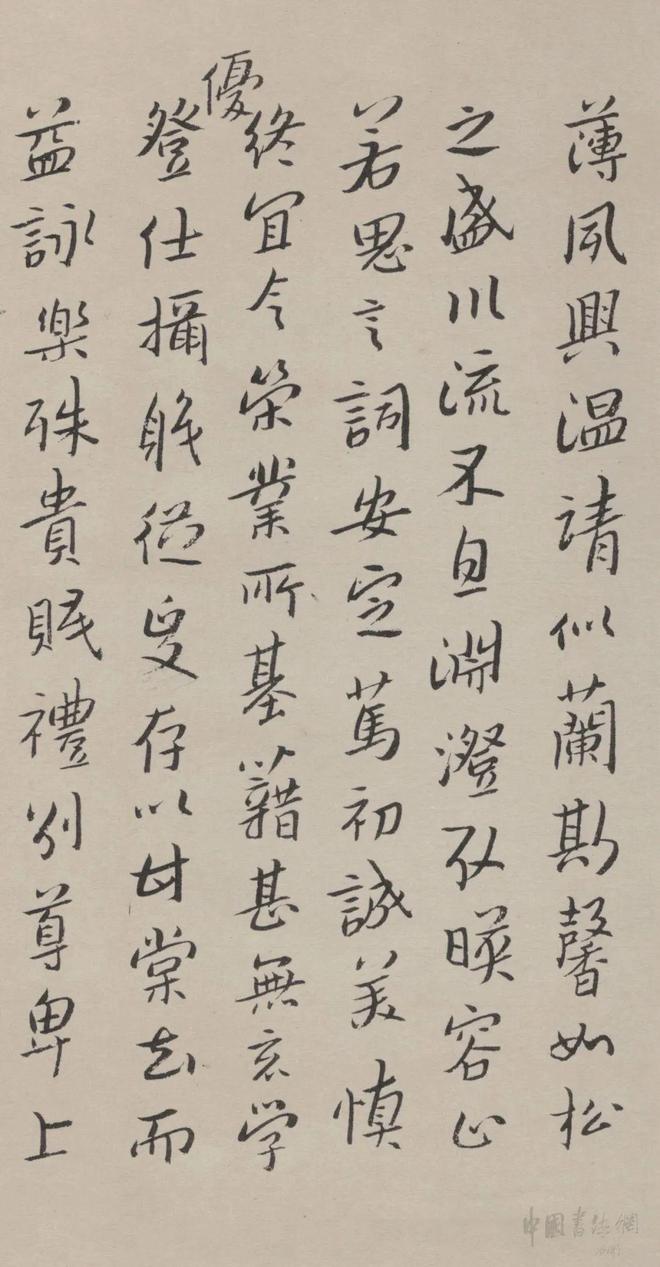 薄夙興温凊似蘭斯馨如松
之盛川流不息淵澄取暎容止
若思言詞安定萬初誠美慎
終宜令榮業所基籍甚無竟学
優
登仕攝職從政存以甘棠去而
益詠樂殊貴賤禮別尊卑上
中國書法網